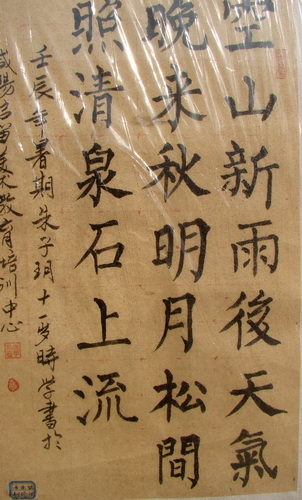 空山新雨後天氣
晚来秋明月松間
照清泉石上流
壬辰年暑期朱子玥十一岁時学書於
咸陽
教育培训中心